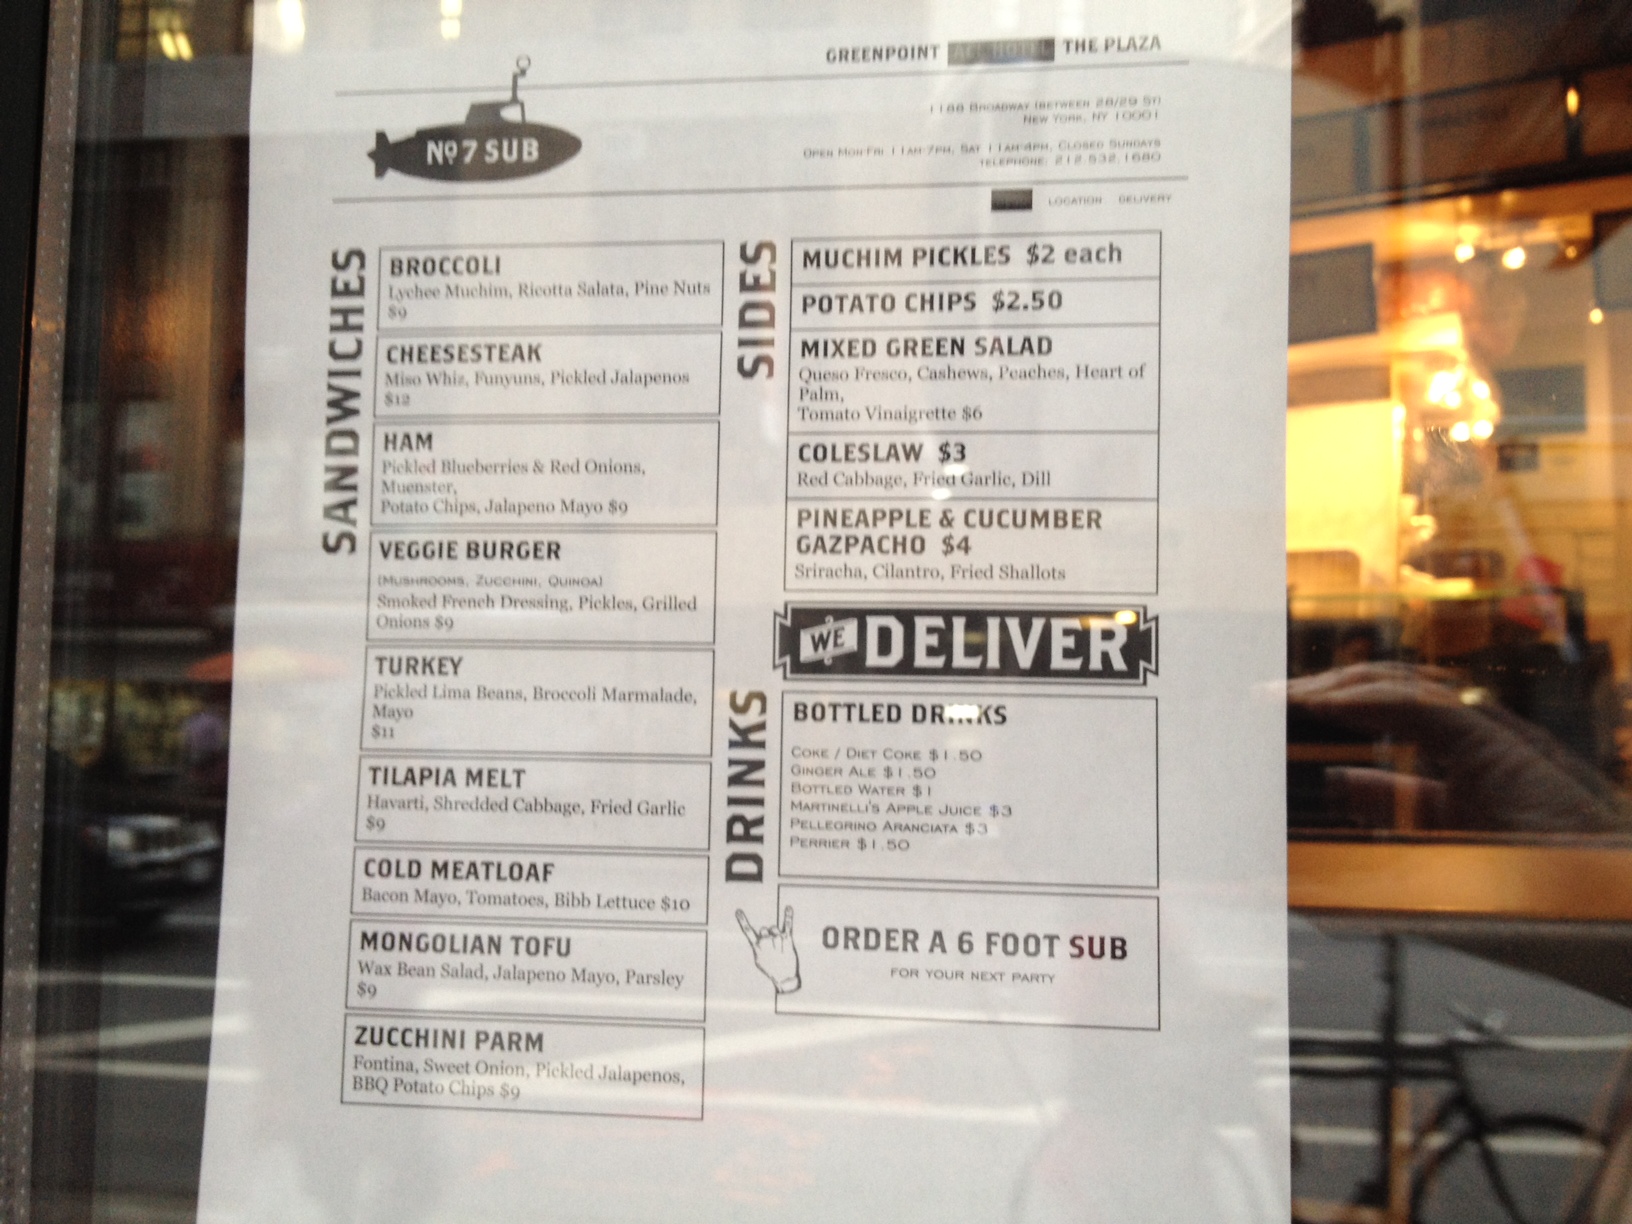 GREENPOINT ACE HOTEL THE PLAZA
Nº 7 SUB
1188 BROADWAY (BETWEEN 28/29 ST)
NEW YORK, NY 10001
OPEN MON-FRI 11AM-7PM, SAT 11AM-4PM, CLOSED SUNDAYS
TELEPHONE: 212.532.1680
LOCATION DELIVERY
SANDWICHES
BROCCOLI
Lychee Muchim, Ricotta Salata, Pine Nuts
$9
CHEESESTEAK
Miso Whiz, Funyuns, Pickled Jalapenos
$12
HAM
Pickled Blueberries & Red Onions,
Muenster,
Potato Chips, Jalapeno Mayo $9
VEGGIE BURGER
(MUSHROOMS, ZUCCHINI, QUINOA)
Smoked French Dressing, Pickles, Grilled
Onions $9
TURKEY
Pickled Lima Beans, Broccoli Marmalade,
Mayo
$11
TILAPIA MELT
Havarti, Shredded Cabbage, Fried Garlic
$9
COLD MEATLOAF
Bacon Mayo, Tomatoes, Bibb Lettuce $10
MONGOLIAN TOFU
Wax Bean Salad, Jalapeno Mayo, Parsley
$9
ZUCCHINI PARM
Fontina, Sweet Onion, Pickled Jalapenos,
BBQ Potato Chips $9
SIDES
MUCHIM PICKLES $2 each
POTATO CHIPS $2.50
MIXED GREEN SALAD
Queso Fresco, Cashews, Peaches, Heart of
Palm,
Tomato Vinaigrette $6
COLESLAW $3
Red Cabbage, Fried Garlic, Dill
PINEAPPLE & CUCUMBER
GAZPACHO $4
Sriracha, Cilantro, Fried Shallots
WE DELIVER
DRINKS
BOTTLED DRINKS
COKE / DIET COKE $1.50
GINGER ALE $1.50
BOTTLED WATER $1
MARTINELLI'S APPLE JUICE $3
PELLEGRINO ARANCIATA $3
PERRIER $1.50
ORDER A 6 FOOT SUB
FOR YOUR NEXT PARTY